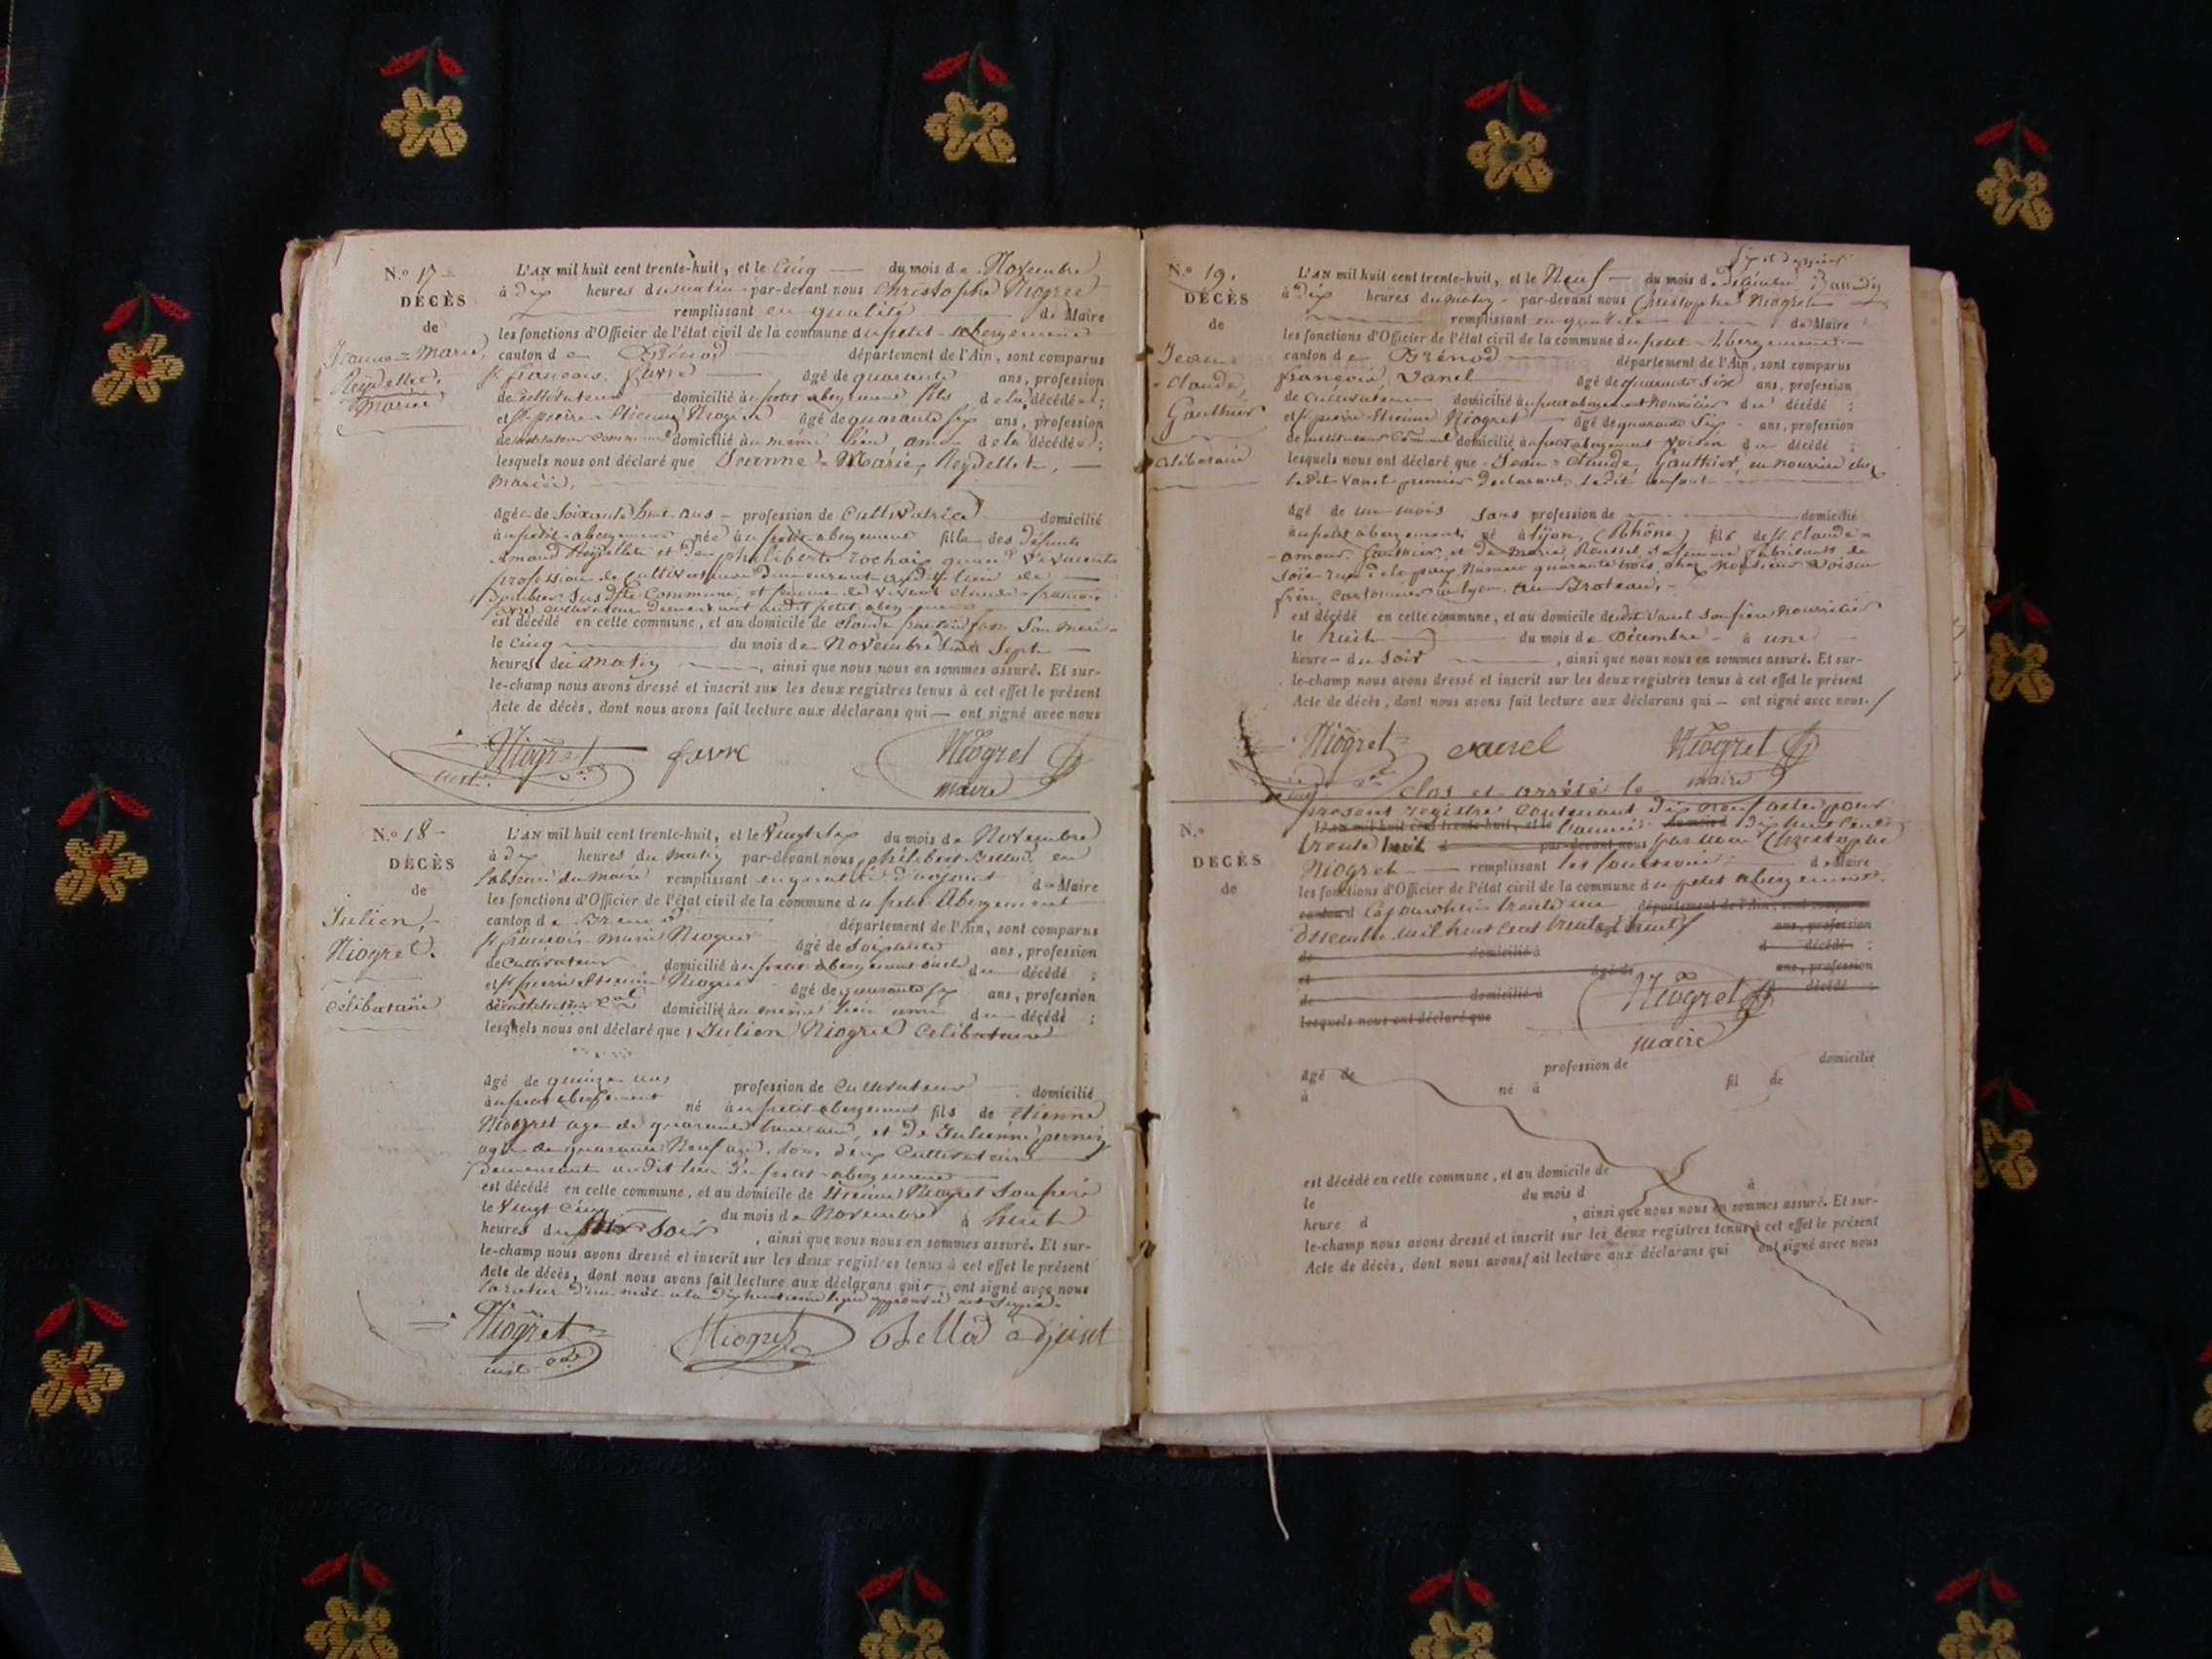 N.º 17
DÉCÈS
de
Jeanne-Marie,
Reydellet.
Mariée.
L'AN mil huit cent trente-huit, et le Cinq du mois de Novembre
à dix heures du matin par-devant nous Christophe Niogret
remplissant en qualité de Maire
les fonctions d'Officier de l'état civil de la commune du petit-abergement
canton de Brénod département de l'Ain, sont comparus
françois favre âgé de quarante ans, profession
de cultivateur domicilié au petit abergement fils de la décédée ;
et Sr pierre-Etienne Niogret âgé de quarante six ans, profession
domicilié au même lieu ami de la décédée ;
lesquels nous ont déclaré que Jeanne-Marie Reydellet,
mariée,
âgée de Soixante huit ans profession de Cultivatrice domicilié
au petit-abergement née au petit-abergement fille des défunts
Reydellet et de philiberte rochaix quand vivaient
profession de Cultivateurs demeurant audit lieu de
susdite Commune, et femme de vivant claude-françois
favre cultivateur demeurant audit petit abergement
est décédé en celle commune, et au domicile de claude françois favre Son mari
le cinq du mois de Novembre à Sept
heures du matin , ainsi que nous nous en sommes assuré. Et sur-
le-champ nous avons dressé et inscrit sur les deux registres tenus à cet effet le présent
Acte de décès, dont nous avons fait lecture aux déclarans qui — ont signé avec nous
Niogret favre Niogret
maire
N.º 18
DÉCÈS
de
Julien,
Niogret.
célibataire
L'AN mil huit cent trente-huit, et le Vingt six du mois de Novembre
à dix heures du matin par-devant nous philibert Bellod en
l'absence du maire remplissant en qualité d'adjoint de Maire
les fonctions d'Officier de l'état civil de la commune du petit Abergement
canton de Brénod département de l'Ain, sont comparus
Sr françois-marie Niogret âgé de Soixante ans, profession
de Cultivateur domicilié au petit-abergement oncle du décédé ;
et Sr pierre Etienne Niogret âgé de quarante six ans, profession
domicilié au même lieu ami du décédé ;
lesquels nous ont déclaré que Julien Niogret Célibataire
âgé de quinze ans profession de Cultivateur domicilié
au petit abergement né au petit-abergement fils de Etienne
Niogret agé de quarante ans, et de Julienne pernin
agée de quarante Neuf ans, tous deux Cultivateurs
demeurant audit lieu du petit-abergement
est décédé en celle commune, et au domicile de Etienne Niogret Son père
le Vingt cinq du mois de Novembre à huit
heures du soir , ainsi que nous nous en sommes assuré. Et sur-
le-champ nous avons dressé et inscrit sur les deux registres tenus à cet effet le présent
Acte de décès, dont nous avons fait lecture aux déclarans qui — ont signé avec nous
la rature d'un mot à la dix huitième ligne approuvée
Niogret Niogret Bellod adjoint
N.º 19.
DÉCÈS
de
Jean
-Claude,
Gauthier
célibataire
L'AN mil huit cent trente-huit, et le Neuf du mois de Décembre
à dix heures du matin par-devant nous Christophe Niogret
remplissant en qualité de Maire
les fonctions d'Officier de l'état civil de la commune du petit-Abergement
canton de Brénod département de l'Ain, sont comparus
françois Vanel âgé de quarante six ans, profession
de Cultivateur domicilié au petit abergement nourricier du décédé ;
et Sr pierre-Etienne Niogret âgé de quarante six ans, profession
domicilié au petit abergement Voisin du décédé ;
lesquels nous ont déclaré que Jean-Claude Gauthier, en nourrice chez
ledit Vanel premier déclarant, ledit enfant
âgé de un mois sans profession de domicilié
au petit abergement né à Lyon, (Rhône) fils de Sr Claude-
-amour Gauthier et de Marie Roussel, sa femme fabricants de
soie rue de la paix Numero quarante trois, chez Monsieur Voisin
frère, à Lyon aux Broteaux.
est décédé en celle commune, et au domicile dudit Vanel son père Nourricier
le huit du mois de Décembre à une
heure du Soir , ainsi que nous nous en sommes assuré. Et sur-
le-champ nous avons dressé et inscrit sur les deux registres tenus à cet effet le présent
Acte de décès, dont nous avons fait lecture aux déclarans qui — ont signé avec nous.
Niogret vanel Niogret
maire
clos et arrêté le
N.º
DÉCÈS
de
présent registre Contenant dix neuf actes pour
L'AN mil huit cent trente-huit, et le l'année du mois d dix huit cent
trente huit par-devant nous par nous Christophe
Niogret remplissant les fonctions de Maire
les fonctions d'Officier de l'état civil de la commune du petit abergement.
canton d Cejourd'hui trente un département de l'Ain, sont comparus
Décembre mil huit cent trente huit ans, profession
de domicilié à d décédé ;
et âgé de ans, profession
de domicilié à décédé ;
lesquels nous ont déclaré que
Niogret
maire
âgé de profession de domicilié
à né à fil de
est décédé en celle commune, et au domicile de
le du mois d à
heure d , ainsi que nous nous en sommes assuré. Et sur-
le-champ nous avons dressé et inscrit sur les deux registres tenus à cet effet le présent
Acte de décès, dont nous avons fait lecture aux déclarans qui ont signé avec nous